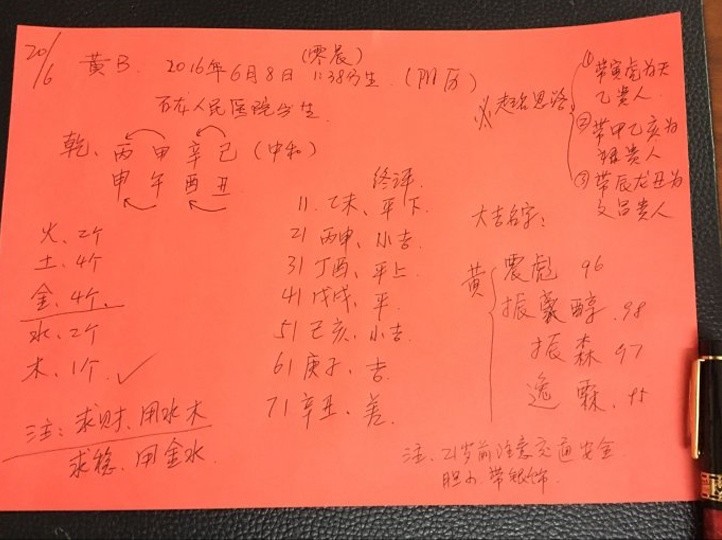 20/6
黄B. 2016年6月8日 (零晨) 1:38分生 (阳历)
石龙人民医院出生
乾、丙 甲 辛 己 (中和)
申 午 酉 丑
火、2个
土、4个
金、4个、
水、2个
木、1个 ✓
注:求财、用水木
求稳、用金水
终评
11. 乙未、平下
21 丙申、小吉
31 丁酉、平上
41 戊戌、平
51 己亥、小吉
61 庚子、吉
71 辛丑、差
起名思路
① 带寅虎为天
乙贵人
② 带甲乙亥为
禄贵人
③ 带辰龙丑为
文昌贵人
大吉名字:
黄
震彪 96
振豪醇 98
振森 97
逸霖 95
注、21岁前注意交通安全
胆小 带银饰